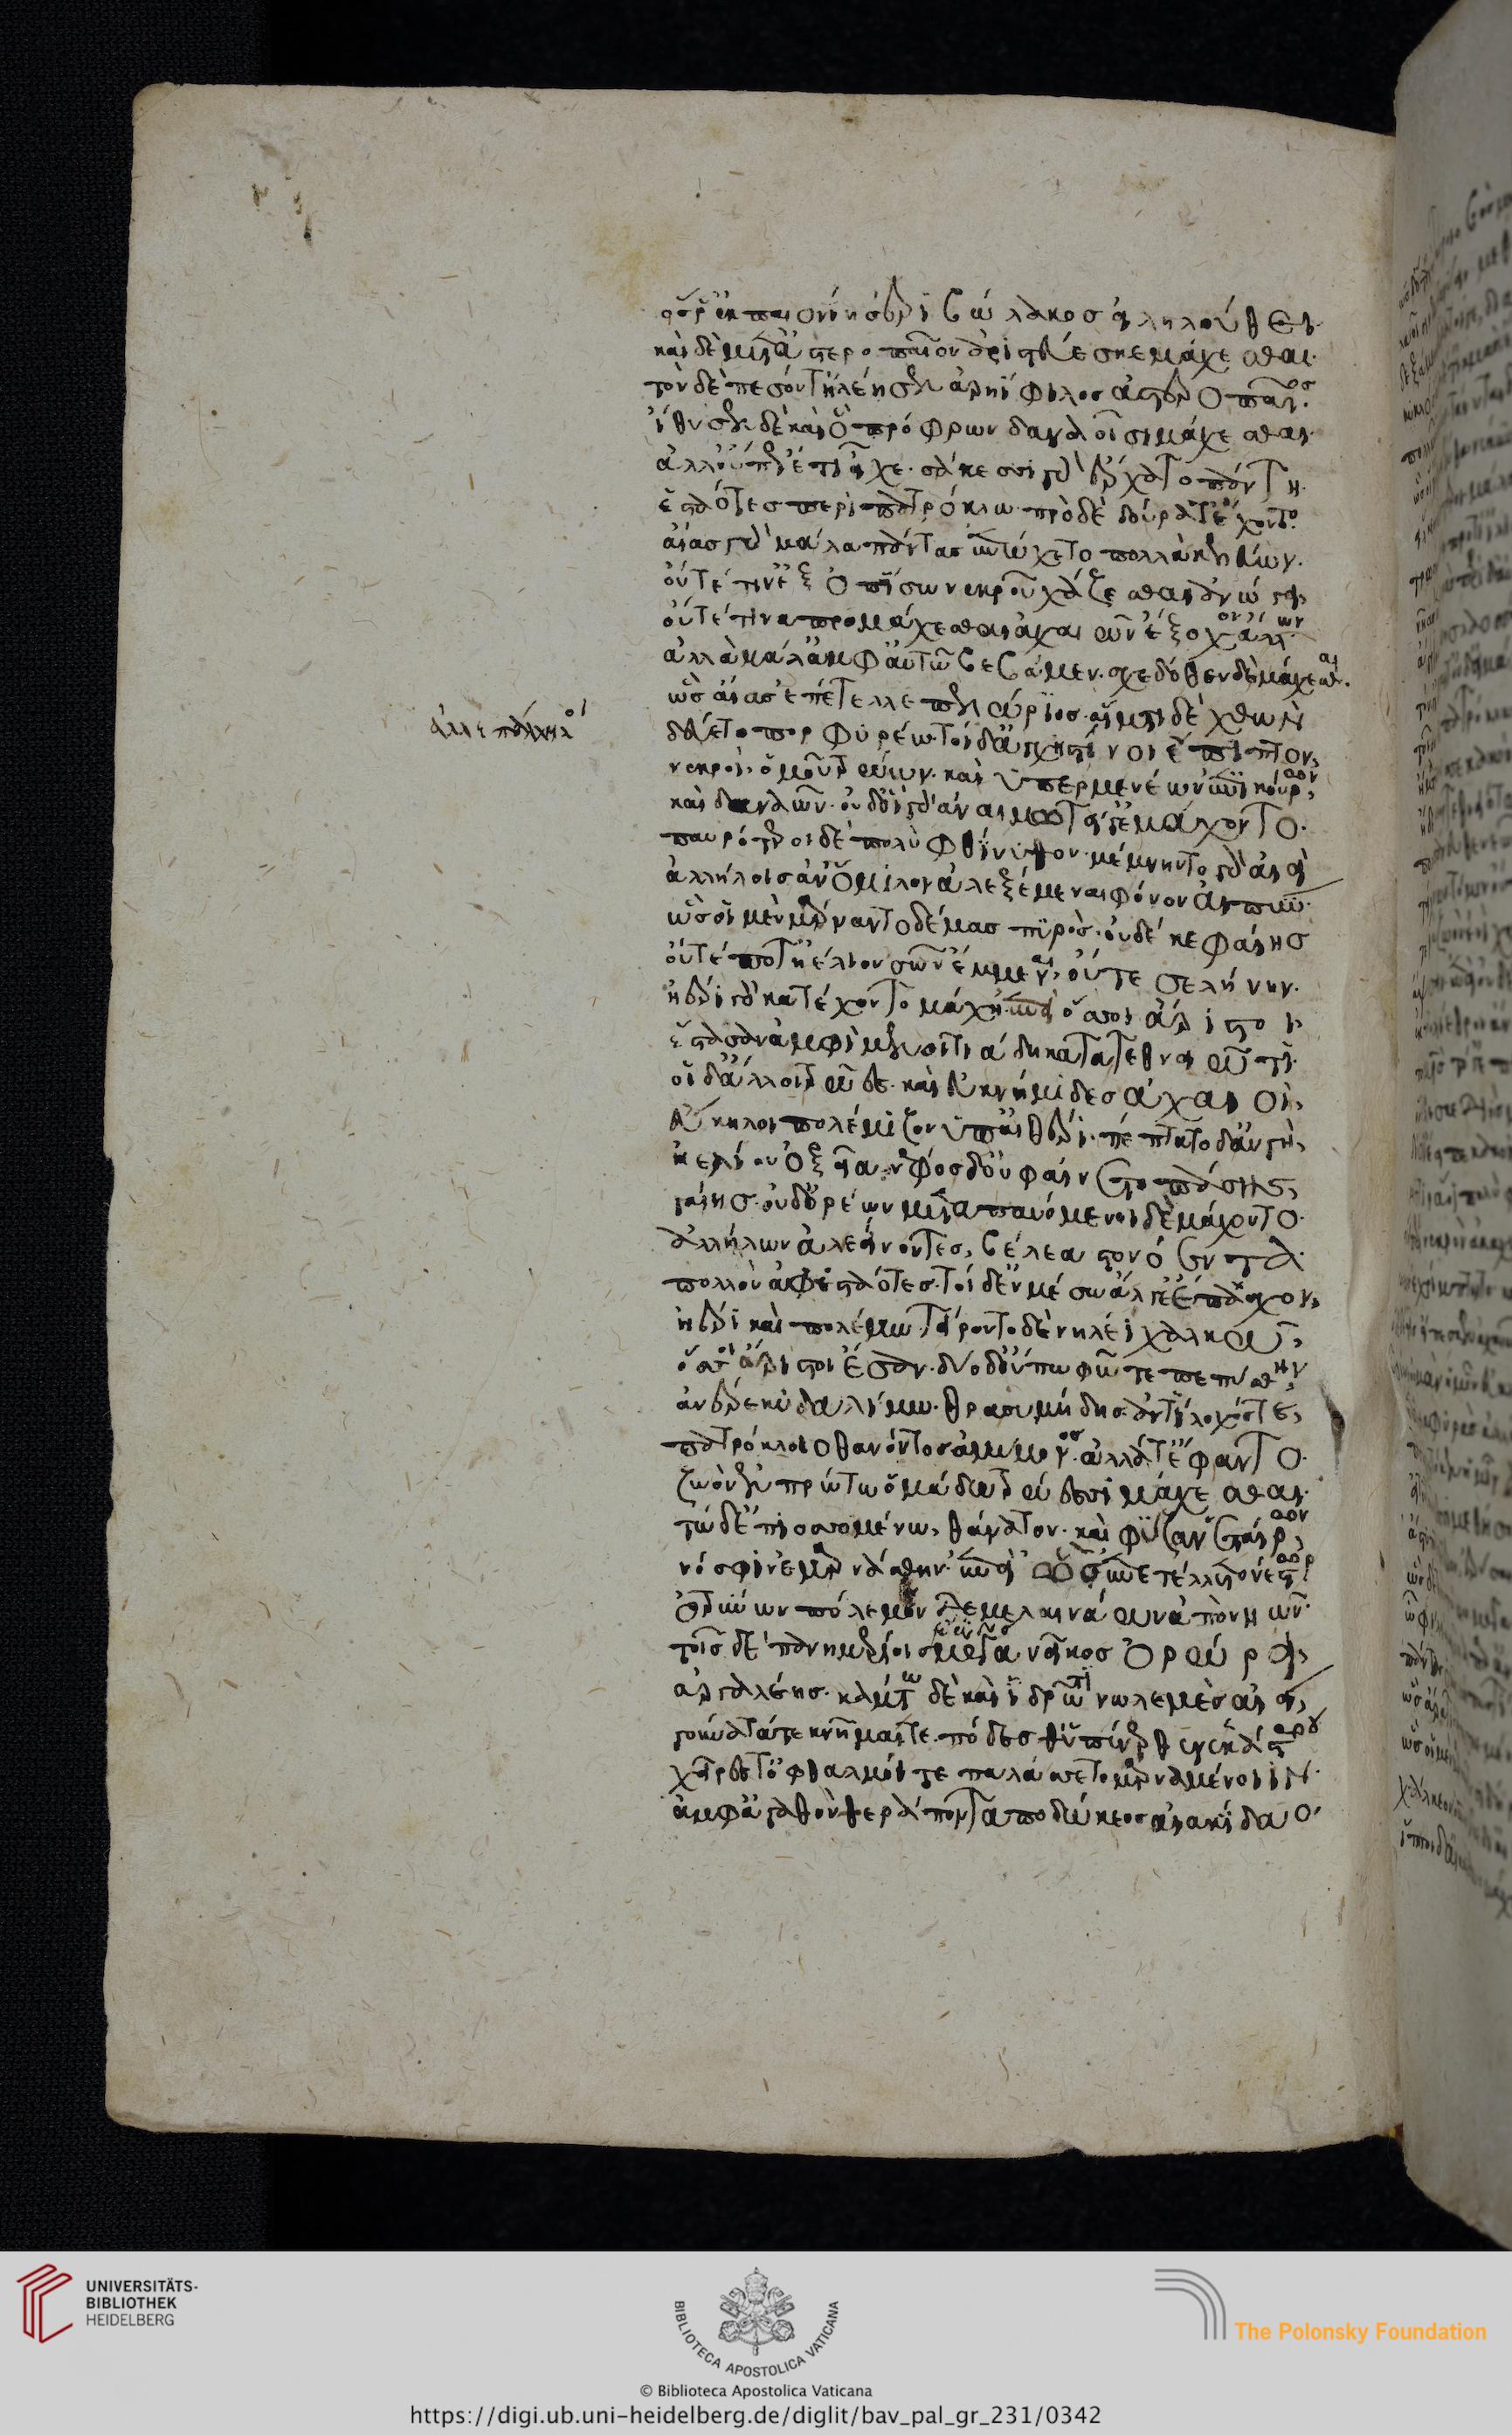 ὅς ῥ' ἐκ παιονίης ἐριβώλακος εἰληλούθει·
καὶ δὲ μετ' ἀστεροπαῖον ἀριστεύεσκε μάχεσθαι·
τὸν δὲ πεσόντ' ἠλέησεν ἀρηΐφιλος ἀστεροπαῖος·
ἴθυσεν δὲ καὶ ὃ πρόφρων δαναοῖσι μάχεσθαι·
ἀλλ' οὔπως ἔτι εἶχε· σάκεσσι γὰρ ἔρχατο πάντη·
ἑσταότες περὶ πατρόκλω· πρὸ δὲ δούρατ' ἔχοντο·
αἴας γὰρ μάλα πάντας ἐπώχετο πολλὰ κελεύων·
οὔτέ τιν' ἐξοπίσω νεκροῦ χάζεσθαι ἀνώγει,
οὔτέ τινα προμάχεσθαι ἀχαιῶν ἔξοχον ἄλλων·
ἀλλὰ μάλ' ἀμφ' αὐτῶ βεβάμεν· σχεδόθεν δὲ μάχεσθαι.
ὣς αἴας ἐπέτελλε πελώριος· αἵματι δὲ χθὼν
ἀλλεπάλληλοι
δεύετο πορφυρέω· τοὶ δ' ἀγχιστίνοι ἔπιπτον,
νεκροὶ ὁμοῦ τρώων· καὶ ὑπερμενέων ἐπικούρων,
καὶ δαναῶν· οὐδ' οἳ γὰρ ἀναιμωτεί γε μάχοντο·
παυρότεροι δὲ πολὺ φθίνυθον· μέμνηντο γὰρ αἰεὶ
ἀλλήλοις ἀν' ὅμιλον ἀλεξέμεναι φόνον αἰπύν·
ὣς οἳ μὲν μάρναντο δέμας πυρός· οὐδέ κε φαίης
οὔτέ ποτ' ἠέλιον σῶν ἔμμεναι, οὔτε σελήνην·
ἠέρι γὰρ κατέχοντο μάχῃ ἐπὶ ὅσσοι ἄριστοι
ἕστασαν ἀμφὶ μενοιτιάδη κατατεθνειῶτι·
οἳ δ' ἄλλοι τρῶες· καὶ ἐϋκνήμιδες ἀχαιοὶ,
εὔκηλοι πολέμιζον ὑπ' αἰθέρι· πέπτατο δ' αὐγὴ,
ἠελίου ὀξεῖα· νέφος δ' οὐ φαίνετο πάσης,
γαίης· οὐδ' ὀρέων· μεταπαυόμενοι δὲ μάχοντο·
ἀλλήλων ἀλεείνοντες, βέλεα στονόεντα·
πολλὸν ἀφεσταότες· τοὶ δ' ἐν μέσω ἄλγε' ἔπασχον,
ἠέρι καὶ πολέμω· τείροντο δὲ νηλέϊ χαλκῶ,
ὅσσοι ἄριστοι ἔσαν· δύο δ' οὔπω φῶτε πεπύσθην,
ἀνέρε κυδαλίμω· θρασυμήδης ἀντίλοχός τε,
πατρόκλοιο θανόντος ἀμύμονος· ἀλλ' ἔτ' ἔφαντο·
ζωὸν ἐνὶ πρώτω ὁμάδω τρώεσσι μάχεσθαι·
τὼ δ' ἐπιοσσομένω, θάνατον· καὶ φύζαν ἑταίρων,
νόσφιν ἐμαρνάσθην· ἐπεὶ ὣς ἐπετέλλετο νέστωρ
ὀτρύνων πόλεμον δὲ μελαινάων ἀπὸ νηῶν·
τοῖς δὲ πανημερίοις ἔριδος μέγα νεῖκος ὀρώρει,
ἀργαλέης· καμάτω δὲ καὶ ἱδρῶτι νωλεμὲς αἰεὶ,
γούνατά τε κνῆμαί τε· πόδες θ' ὑπένερθεν ἑκάστου
χεῖρές τ' ὀφθαλμοί τε παλάσσετο μαρναμένοιιν·
ἀμφ' ἀγαθὸν θεράποντα ποδώκεος αἰακίδαο·
UNIVERSITÄTS-
BIBLIOTHEK
HEIDELBERG
BIBLIOTECA APOSTOLICA VATICANA
The Polonsky Foundation
© Biblioteca Apostolica Vaticana
https://digi.ub.uni-heidelberg.de/diglit/bav_pal_gr_231/0342